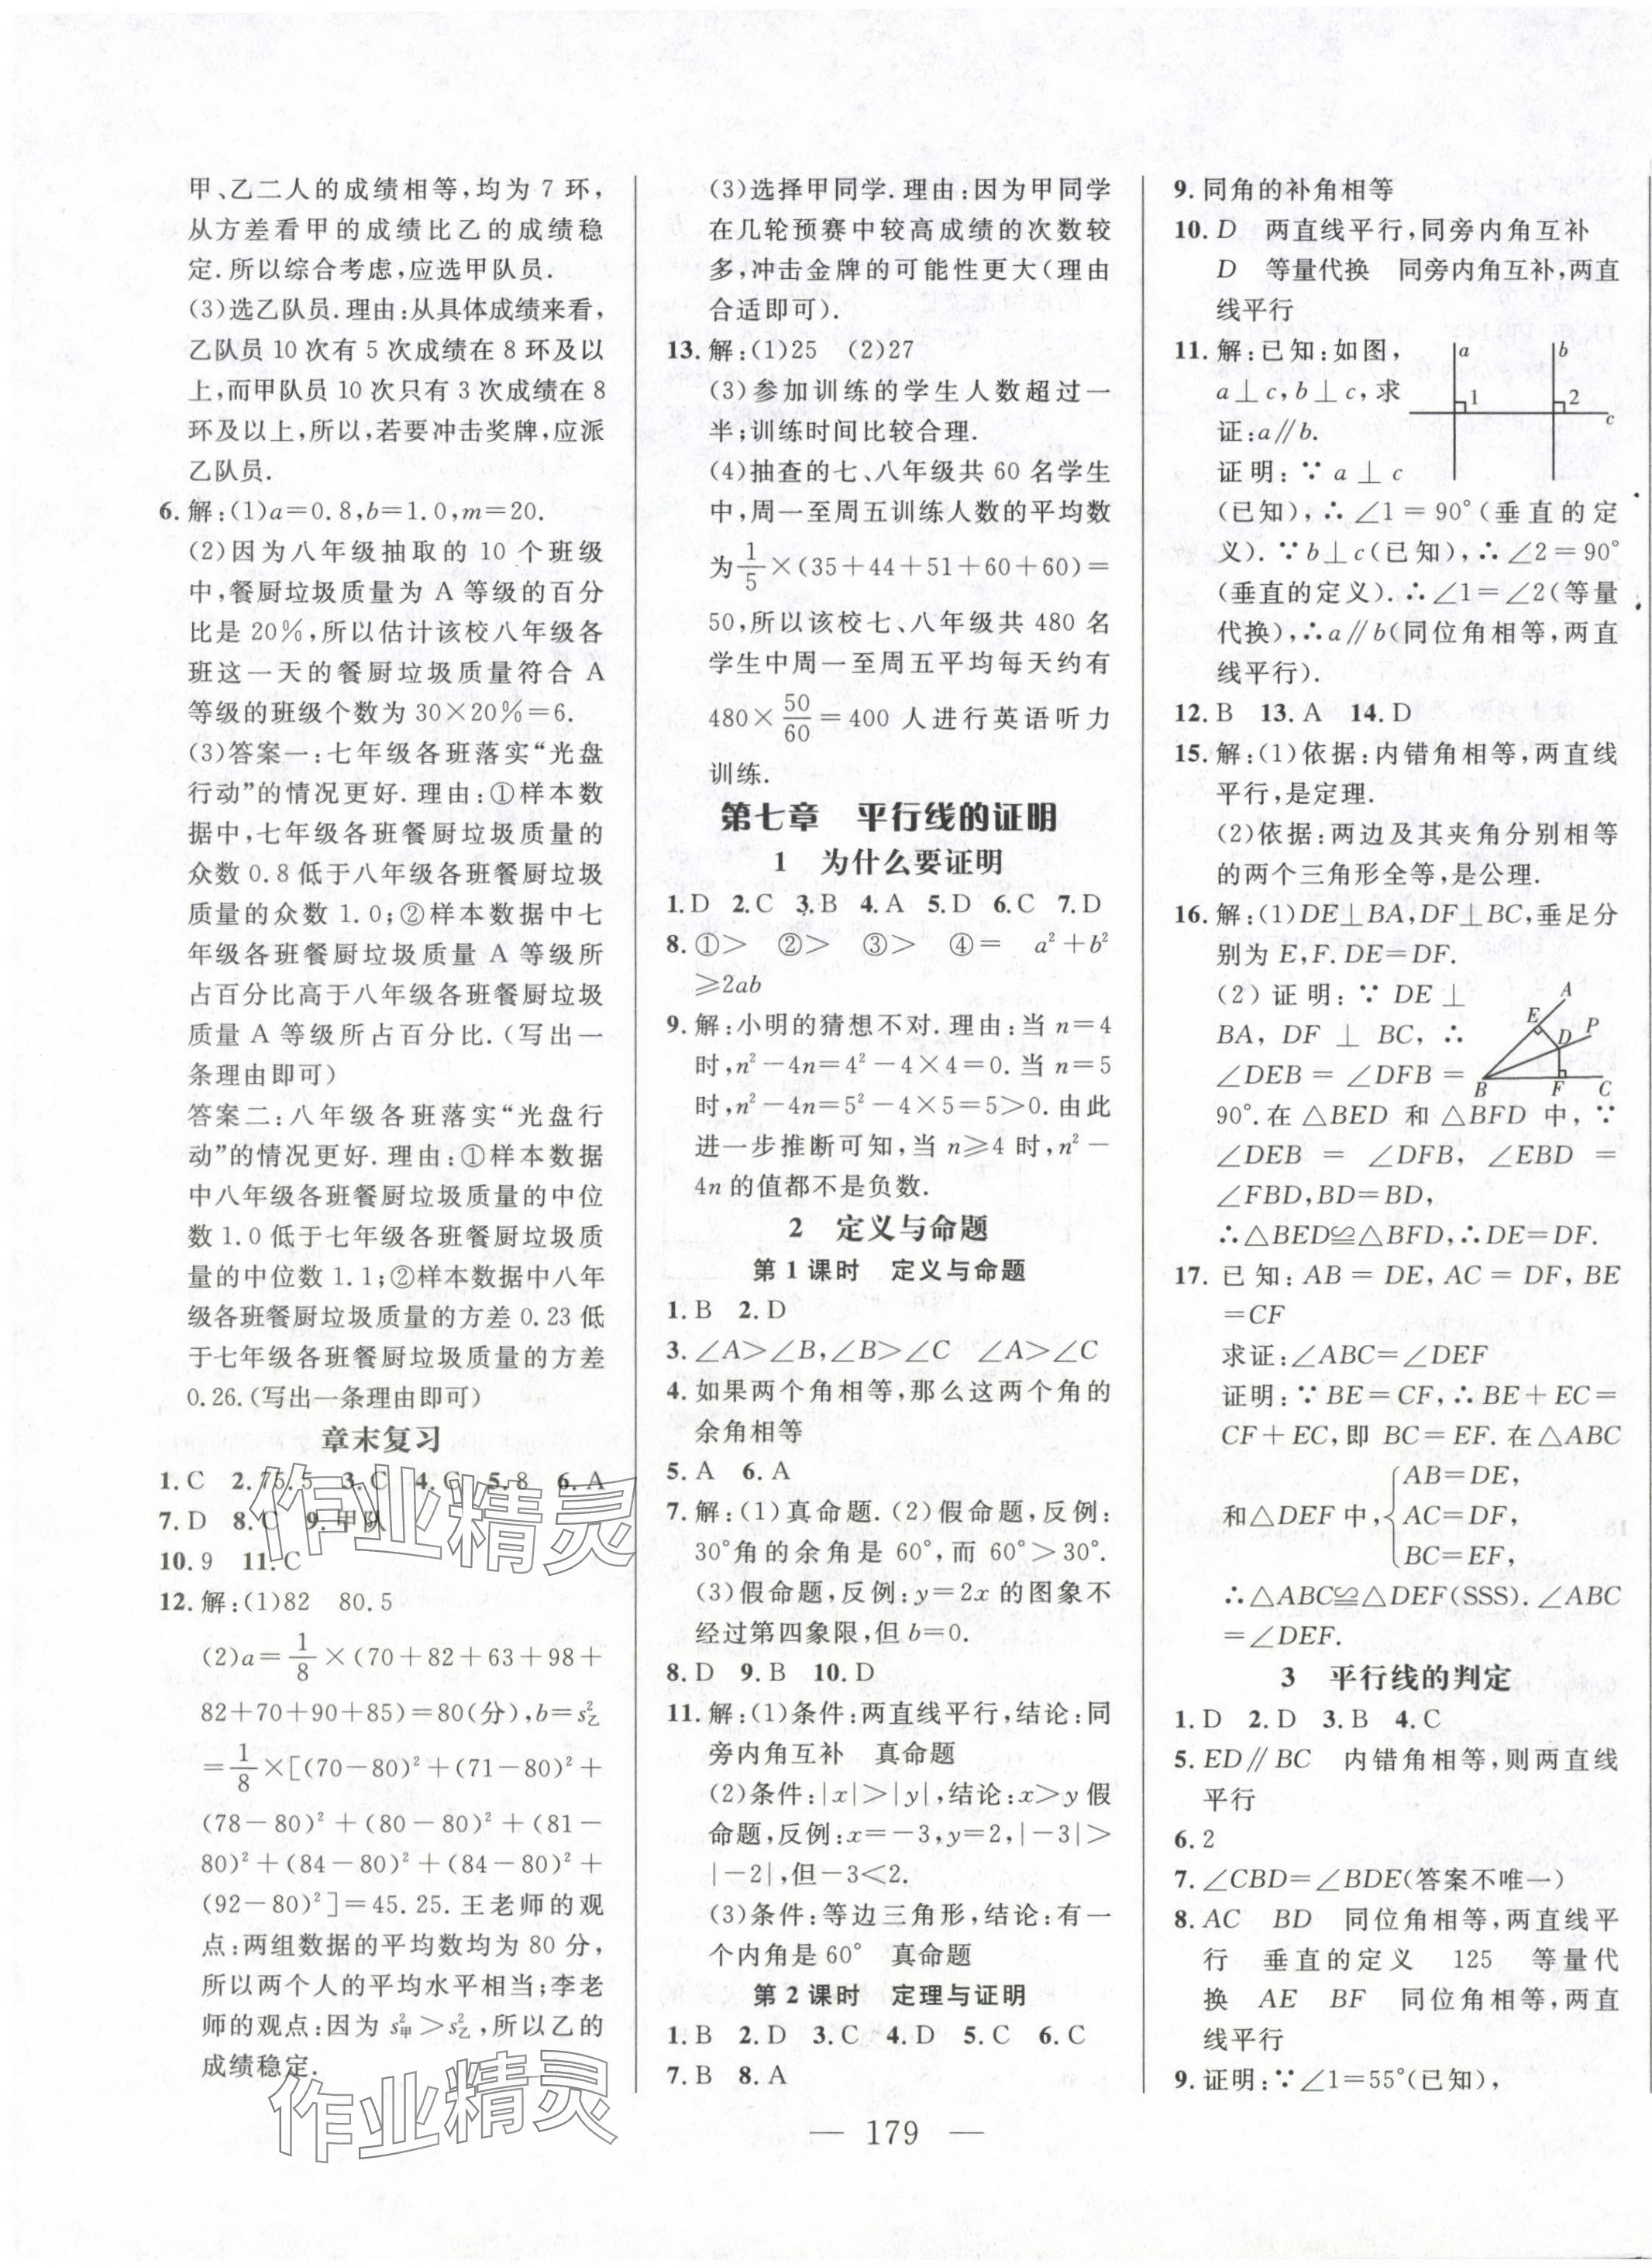 甲、乙二人的成绩相等,均为 7 环,
从方差看甲的成绩比乙的成绩稳
定.所以综合考虑,应选甲队员.
(3)选乙队员.理由:从具体成绩来看,
乙队员 10 次有 5 次成绩在 8 环及以
上,而甲队员 10 次只有 3 次成绩在 8
环及以上,所以,若要冲击奖牌,应派
乙队员.
6. 解:(1)a=0.8,b=1.0,m=20.
(2)因为八年级抽取的 10 个班级
中,餐厨垃圾质量为 A 等级的百分
比是 20%,所以估计该校八年级各
班这一天的餐厨垃圾质量符合 A
等级的班级个数为 30×20%=6.
(3)答案一:七年级各班落实“光盘
行动”的情况更好.理由:①样本数
据中,七年级各班餐厨垃圾质量的
众数 0.8 低于八年级各班餐厨垃圾
质量的众数 1.0;②样本数据中七
年级各班餐厨垃圾质量 A 等级所
占百分比高于八年级各班餐厨垃圾
质量 A 等级所占百分比.(写出一
条理由即可)
答案二:八年级各班落实“光盘行
动”的情况更好.理由:①样本数据
中八年级各班餐厨垃圾质量的中位
数 1.0 低于七年级各班餐厨垃圾质
量的中位数 1.1;②样本数据中八年
级各班餐厨垃圾质量的方差 0.23 低
于七年级各班餐厨垃圾质量的方差
0.26.(写出一条理由即可)
章末复习
1. C 2. 75.5 3. C 4. C 5. 8 6. A
7. D 8. C 9. 甲队
10. 9 11. C
12. 解:(1)82 80.5
(2)a=1/8×(70+82+63+98+
82+70+90+85)=80(分),b=s²乙
=1/8×[(70-80)²+(71-80)²+
(78-80)²+(80-80)²+(81-
80)²+(84-80)²+(84-80)²+
(92-80)²]=45.25.王老师的观
点:两组数据的平均数均为 80 分,
所以两个人的平均水平相当;李老
师的观点:因为 s²甲>s²乙,所以乙的
成绩稳定.
(3)选择甲同学.理由:因为甲同学
在几轮预赛中较高成绩的次数较
多,冲击金牌的可能性更大(理由
合适即可).
13. 解:(1)25 (2)27
(3)参加训练的学生人数超过一
半;训练时间比较合理.
(4)抽查的七、八年级共 60 名学生
中,周一至周五训练人数的平均数
为1/5×(35+44+51+60+60)=
50,所以该校七、八年级共 480 名
学生中周一至周五平均每天约有
480×50/60=400 人进行英语听力
训练.
第七章 平行线的证明
1 为什么要证明
1. D 2. C 3. B 4. A 5. D 6. C 7. D
8. ①> ②> ③> ④= a²+b²
≥2ab
9. 解:小明的猜想不对.理由:当 n=4
时,n²-4n=4²-4×4=0.当 n=5
时,n²-4n=5²-4×5=5>0.由此
进一步推断可知,当 n≥4 时,n²-
4n 的值都不是负数.
2 定义与命题
第 1 课时 定义与命题
1. B 2. D
3. ∠A>∠B,∠B>∠C ∠A>∠C
4. 如果两个角相等,那么这两个角的
余角相等
5. A 6. A
7. 解:(1)真命题.(2)假命题,反例:
30°角的余角是 60°,而 60°>30°.
(3)假命题,反例:y=2x 的图象不
经过第四象限,但 b=0.
8. D 9. B 10. D
11. 解:(1)条件:两直线平行,结论:同
旁内角互补 真命题
(2)条件:|x|>|y|,结论:x>y 假
命题,反例:x=-3,y=2,|-3|>
|-2|,但-3<2.
(3)条件:等边三角形,结论:有一
个内角是 60° 真命题
第 2 课时 定理与证明
1. B 2. D 3. C 4. D 5. C 6. C
7. B 8. A
9. 同角的补角相等
10. D 两直线平行,同旁内角互补
D 等量代换 同旁内角互补,两直
线平行
11. 解:已知:如图,
a⊥c,b⊥c,求
证:a∥b.
证明:∵a⊥c
(已知),∴∠1=90°(垂直的定
义).∵b⊥c(已知),∴∠2=90°
(垂直的定义).∴∠1=∠2(等量
代换),∴a∥b(同位角相等,两直
线平行).
a
b
1
2
c
12. B 13. A 14. D
15. 解:(1)依据:内错角相等,两直线
平行,是定理.
(2)依据:两边及其夹角分别相等
的两个三角形全等,是公理.
16. 解:(1)DE⊥BA,DF⊥BC,垂足分
别为 E,F.DE=DF.
(2)证明:∵DE⊥
BA,DF⊥BC,∴
∠DEB=∠DFB=
90°.在△BED 和△BFD 中,∵
∠DEB=∠DFB,∠EBD=
∠FBD,BD=BD,
∴△BED≌△BFD,∴DE=DF.
A
E
P
D
B
F
C
17. 已知:AB=DE,AC=DF,BE
=CF
求证:∠ABC=∠DEF
证明:∵BE=CF,∴BE+EC=
CF+EC,即 BC=EF.在△ABC
和△DEF 中,{AB=DE,
AC=DF,
BC=EF,
∴△ABC≌△DEF(SSS).∠ABC
=∠DEF.
3 平行线的判定
1. D 2. D 3. B 4. C
5. ED∥BC 内错角相等,则两直线
平行
6. 2
7. ∠CBD=∠BDE(答案不唯一)
8. AC BD 同位角相等,两直线平
行 垂直的定义 125 等量代
换 AE BF 同位角相等,两直
线平行
9. 证明:∵∠1=55°(已知),
— 179 —
作业精灵
作业精灵